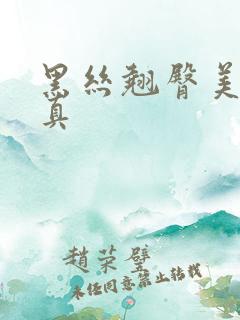 黑丝翘臀美
真
赵荣璧
未经同意禁止转载